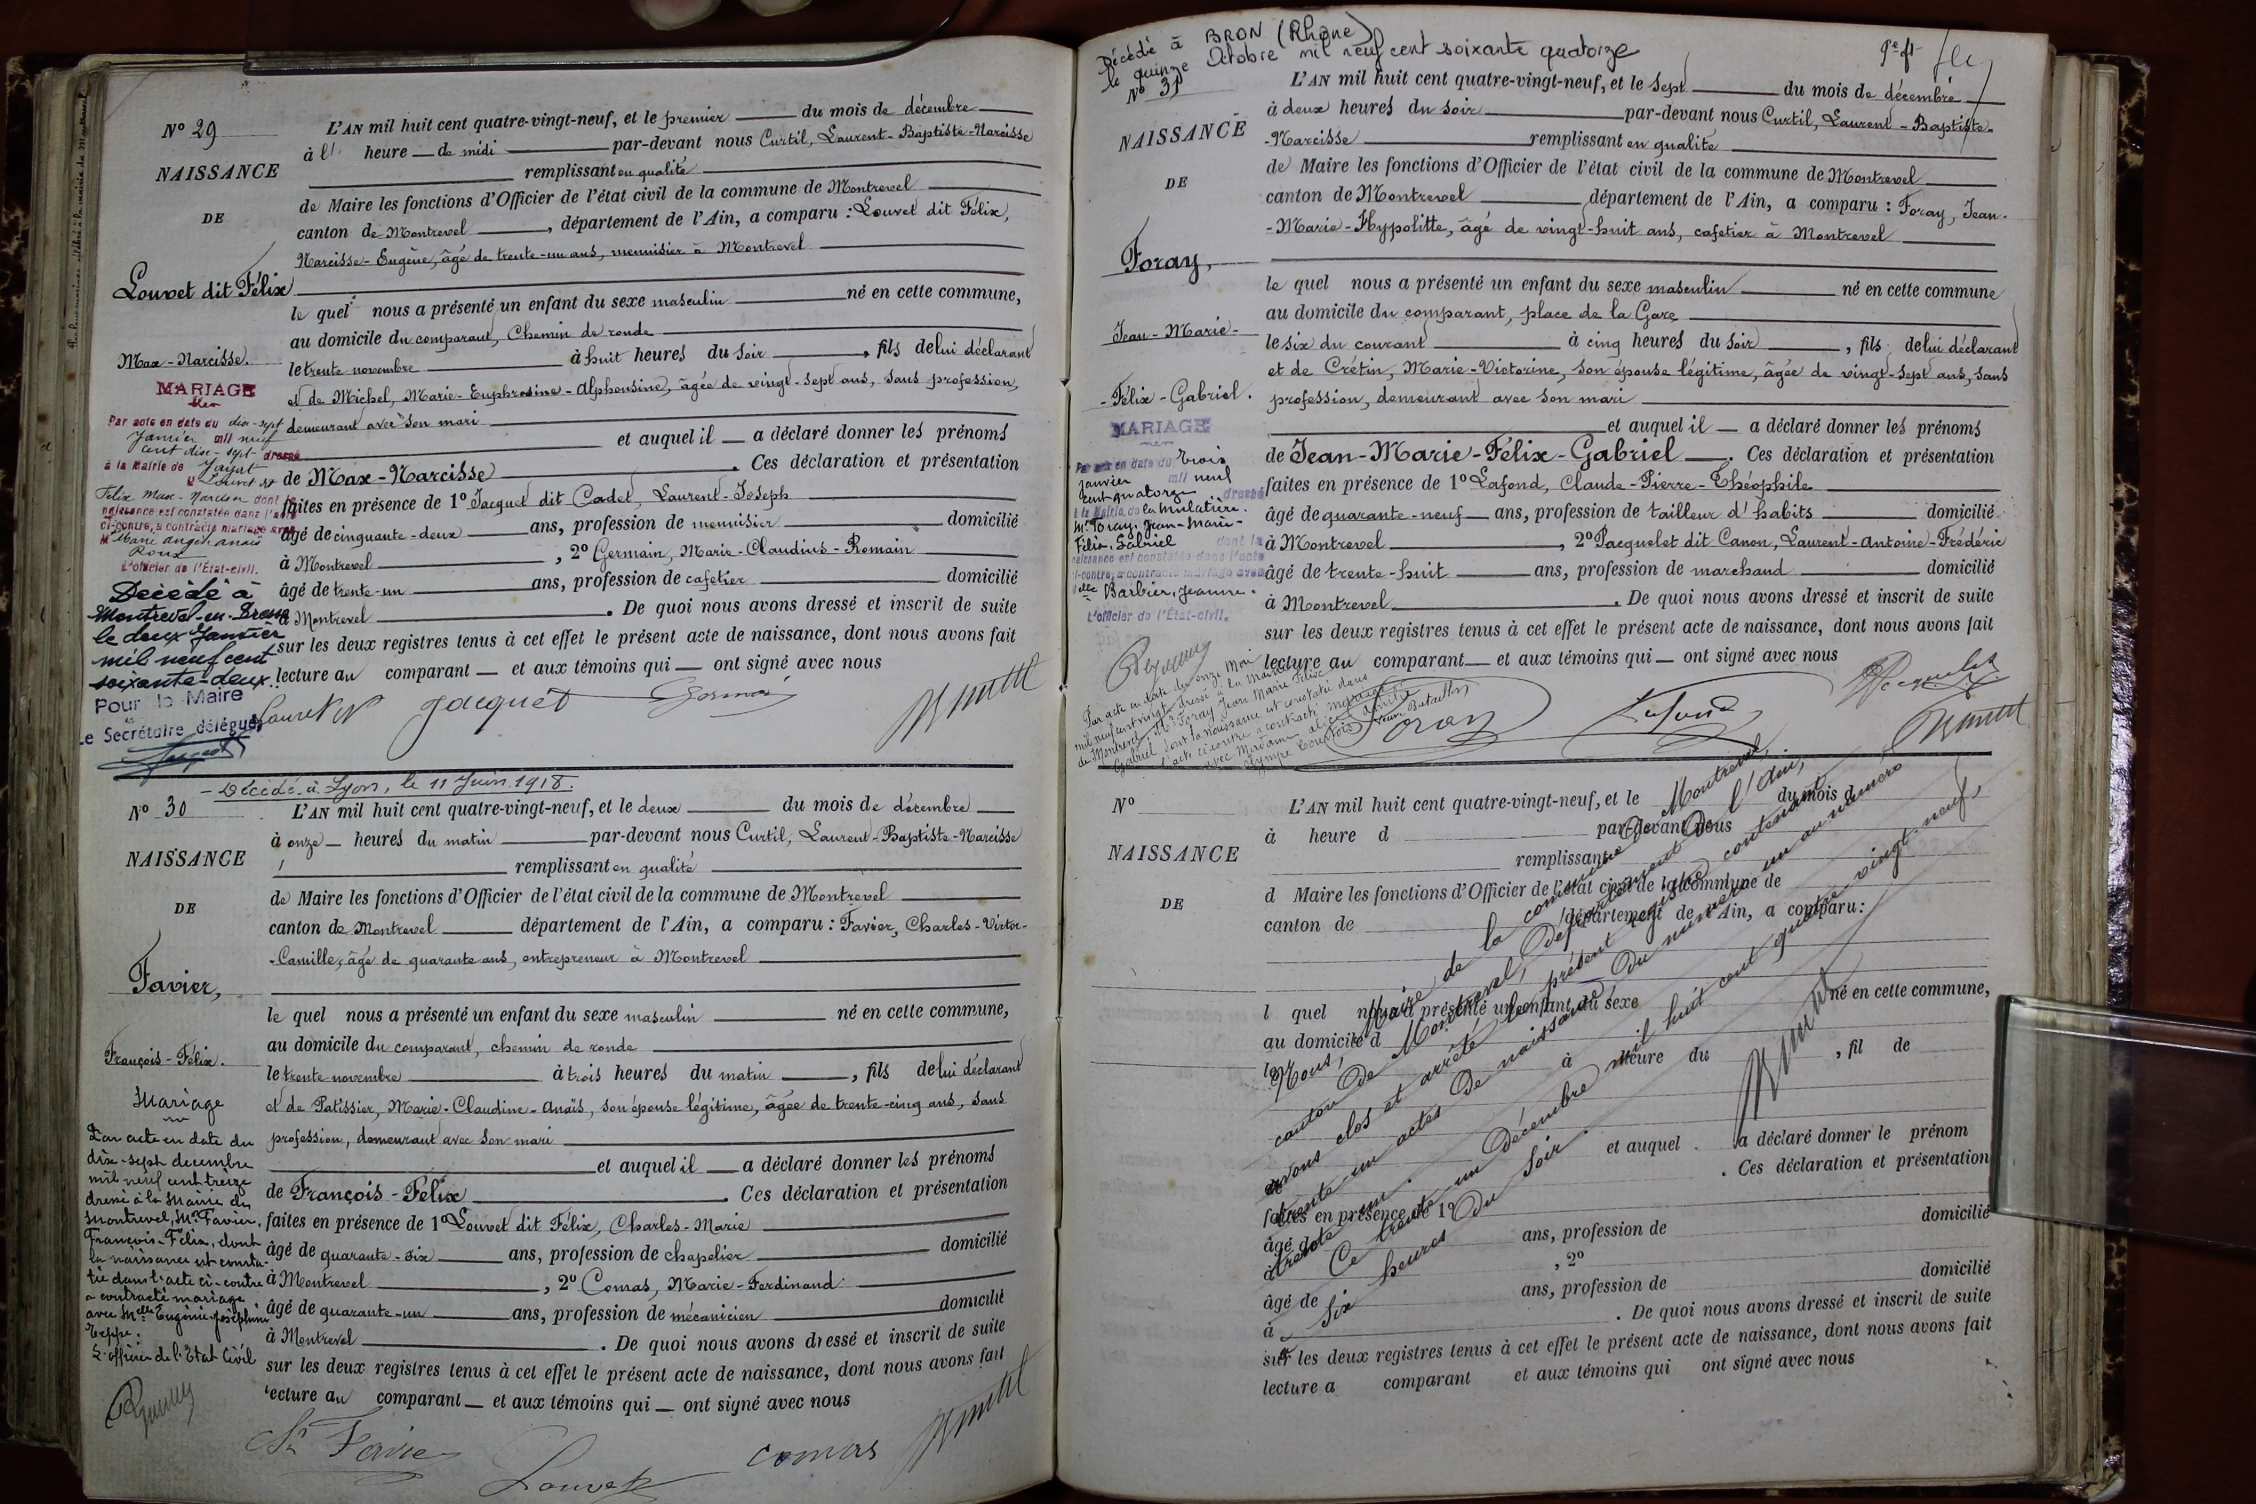 N° 29
NAISSANCE
DE
Louvet dit Félix
Max-Narcisse.
MARIAGE
Par acte en date du dix-sept
Janvier mil neuf
cent dix-sept dressé
à la Mairie de Jayat
M. Louvet dit
Félix Max-Narcisse dont la
naissance est constatée dans l'acte
ci-contre, a contracté mariage avec
Marie Angèle Anaïs
Roux
L'officier de l'État-civil.
Décédé à
Montrevel-en-Bresse
le deux Janvier
mil neuf cent
soixante-deux.
Pour le Maire
Le Secrétaire délégué
L'AN mil huit cent quatre-vingt-neuf, et le premier du mois de décembre
à l' heure de midi par-devant nous Curtil, Laurent-Baptiste-Narcisse
remplissant en qualité
de Maire les fonctions d'Officier de l'état civil de la commune de Montrevel
canton de Montrevel, département de l'Ain, a comparu : Louvet dit Félix,
Narcisse-Eugène, âgé de trente-un ans, menuisier à Montrevel
le quel nous a présenté un enfant du sexe masculin né en cette commune,
au domicile du comparant, Chemin de ronde
le trente novembre à huit heures du soir, fils de lui déclarant
et de Michel, Marie-Euphrosine-Alphonsine, âgée de vingt-sept ans, sans profession,
demeurant avec son mari
et auquel il a déclaré donner les prénoms
de Max-Narcisse. Ces déclaration et présentation
faites en présence de 1° Jacquet dit Cadet, Laurent-Joseph
âgé de cinquante-deux ans, profession de menuisier domicilié
à Montrevel, 2° Germain, Marie-Claudius-Romain
âgé de trente-un ans, profession de cafetier domicilié
à Montrevel. De quoi nous avons dressé et inscrit de suite
sur les deux registres tenus à cet effet le présent acte de naissance, dont nous avons fait
lecture au comparant et aux témoins qui ont signé avec nous
Louvet Jacquet Germain
- Décédé à Lyon, le 11 Juin 1918.
N° 30
NAISSANCE
DE
Favier,
François-Félix.
Mariage
Par acte en date du
dix-sept décembre
mil neuf cent treize
dressé à la Mairie de
Montrevel, Mr Favier,
François-Félix, dont
la naissance est consta-
tée dans l'acte ci-contre
a contracté mariage
avec Melle Eugénie Joséphine
Teppe.
L'officier de l'Etat Civil
L'AN mil huit cent quatre-vingt-neuf, et le deux du mois de décembre
à onze heures du matin par-devant nous Curtil, Laurent-Baptiste-Narcisse
remplissant en qualité
de Maire les fonctions d'Officier de l'état civil de la commune de Montrevel
canton de Montrevel département de l'Ain, a comparu : Favier, Charles-Victor-
-Camille, âgé de quarante ans, entrepreneur à Montrevel
le quel nous a présenté un enfant du sexe masculin né en cette commune,
au domicile du comparant, chemin de ronde
le trente novembre à trois heures du matin, fils de lui déclarant
et de Patissier, Marie-Claudine-Anaïs, son épouse légitime, âgée de trente-cinq ans, sans
profession, demeurant avec son mari
et auquel il a déclaré donner les prénoms
de François-Félix. Ces déclaration et présentation
faites en présence de 1° Louvet dit Félix, Charles-Marie
âgé de quarante-six ans, profession de chapelier domicilié
à Montrevel, 2° Comas, Marie-Ferdinand
âgé de quarante-un ans, profession de mécanicien domicilié
à Montrevel. De quoi nous avons dressé et inscrit de suite
sur les deux registres tenus à cet effet le présent acte de naissance, dont nous avons fait
lecture au comparant et aux témoins qui ont signé avec nous
Favier Louvet Comas
Décédé à BRON (Rhône)
le quinze Octobre mil neuf cent soixante quatorze
N° 31
NAISSANCE
DE
Foray,
Jean-Marie-
-Félix-Gabriel.
MARIAGE
Par acte en date du trois
janvier mil neuf
cent quatorze dressé
à la Mairie de la Mulatière.
Mr Foray, Jean-Marie-
Félix-Gabriel dont la
naissance est constatée dans l'acte
ci-contre, a contracté mariage avec
Melle Barbier, Jeanne.
L'officier de l'État-civil.
Par acte en date du onze Mai
mil neuf cent vingt dressé à la Mairie
de Montrevel, Mr Foray Jean Marie Félix
Gabriel dont la naissance est constatée dans
l'acte ci contre a contracté mariage
avec Madame
Olympe
L'AN mil huit cent quatre-vingt-neuf, et le sept du mois de décembre
à deux heures du soir par-devant nous Curtil, Laurent-Baptiste-
-Narcisse remplissant en qualité
de Maire les fonctions d'Officier de l'état civil de la commune de Montrevel
canton de Montrevel département de l'Ain, a comparu : Foray, Jean-
-Marie-Hypolitte, âgé de vingt-huit ans, cafetier à Montrevel
le quel nous a présenté un enfant du sexe masculin né en cette commune
au domicile du comparant, place de la Gare
le six du courant à cinq heures du soir, fils de lui déclarant
et de Crétin, Marie-Victorine, son épouse légitime, âgée de vingt-sept ans, sans
profession, demeurant avec son mari
et auquel il a déclaré donner les prénoms
de Jean-Marie-Félix-Gabriel. Ces déclaration et présentation
faites en présence de 1° Lafond, Claude-Pierre-Théophile
âgé de quarante-neuf ans, profession de tailleur d'habits domicilié
à Montrevel, 2° Pacquelet dit Canon, Laurent-Antoine-Frédéric
âgé de trente-huit ans, profession de marchand domicilié
à Montrevel. De quoi nous avons dressé et inscrit de suite
sur les deux registres tenus à cet effet le présent acte de naissance, dont nous avons fait
lecture au comparant et aux témoins qui ont signé avec nous
Foray Lafond Pacquelet
N°
NAISSANCE
DE
L'AN mil huit cent quatre-vingt-neuf, et le du mois d
à heure d par-devant nous
remplissant
d Maire les fonctions d'Officier de l'état civil de la commune de
canton de département de l'Ain, a comparu :
l quel nous a présenté un enfant du sexe né en cette commune,
au domicile d
le à heure du , fil de
et auquel a déclaré donner le prénom
. Ces déclaration et présentation
faites en présence de 1°
âgé de ans, profession de domicilié
à , 2°
âgé de ans, profession de domicilié
à . De quoi nous avons dressé et inscrit de suite
sur les deux registres tenus à cet effet le présent acte de naissance, dont nous avons fait
lecture a comparant et aux témoins qui ont signé avec nous
Nous, Maire de la commune de Montrevel,
canton de Montrevel, Département de l'Ain,
avons clos et arrêté le présent registre contenant
trente-un actes de naissance du numéro un au numéro
trente-un.
Ce trente-un Décembre mil huit cent quatre-vingt-neuf,
à six heures du soir.